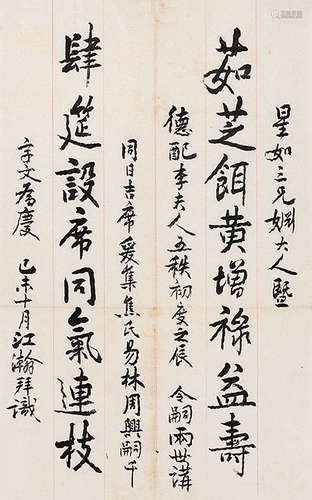 星如三兄姻大人暨
茹芝餌黄增禄益壽
德配李夫人五秩初度之辰 令嗣兩世講
同日吉席爰集焦氏易林周興嗣千
肆筵設席同氣連枝
字文為慶 己未十月江瀚拜識